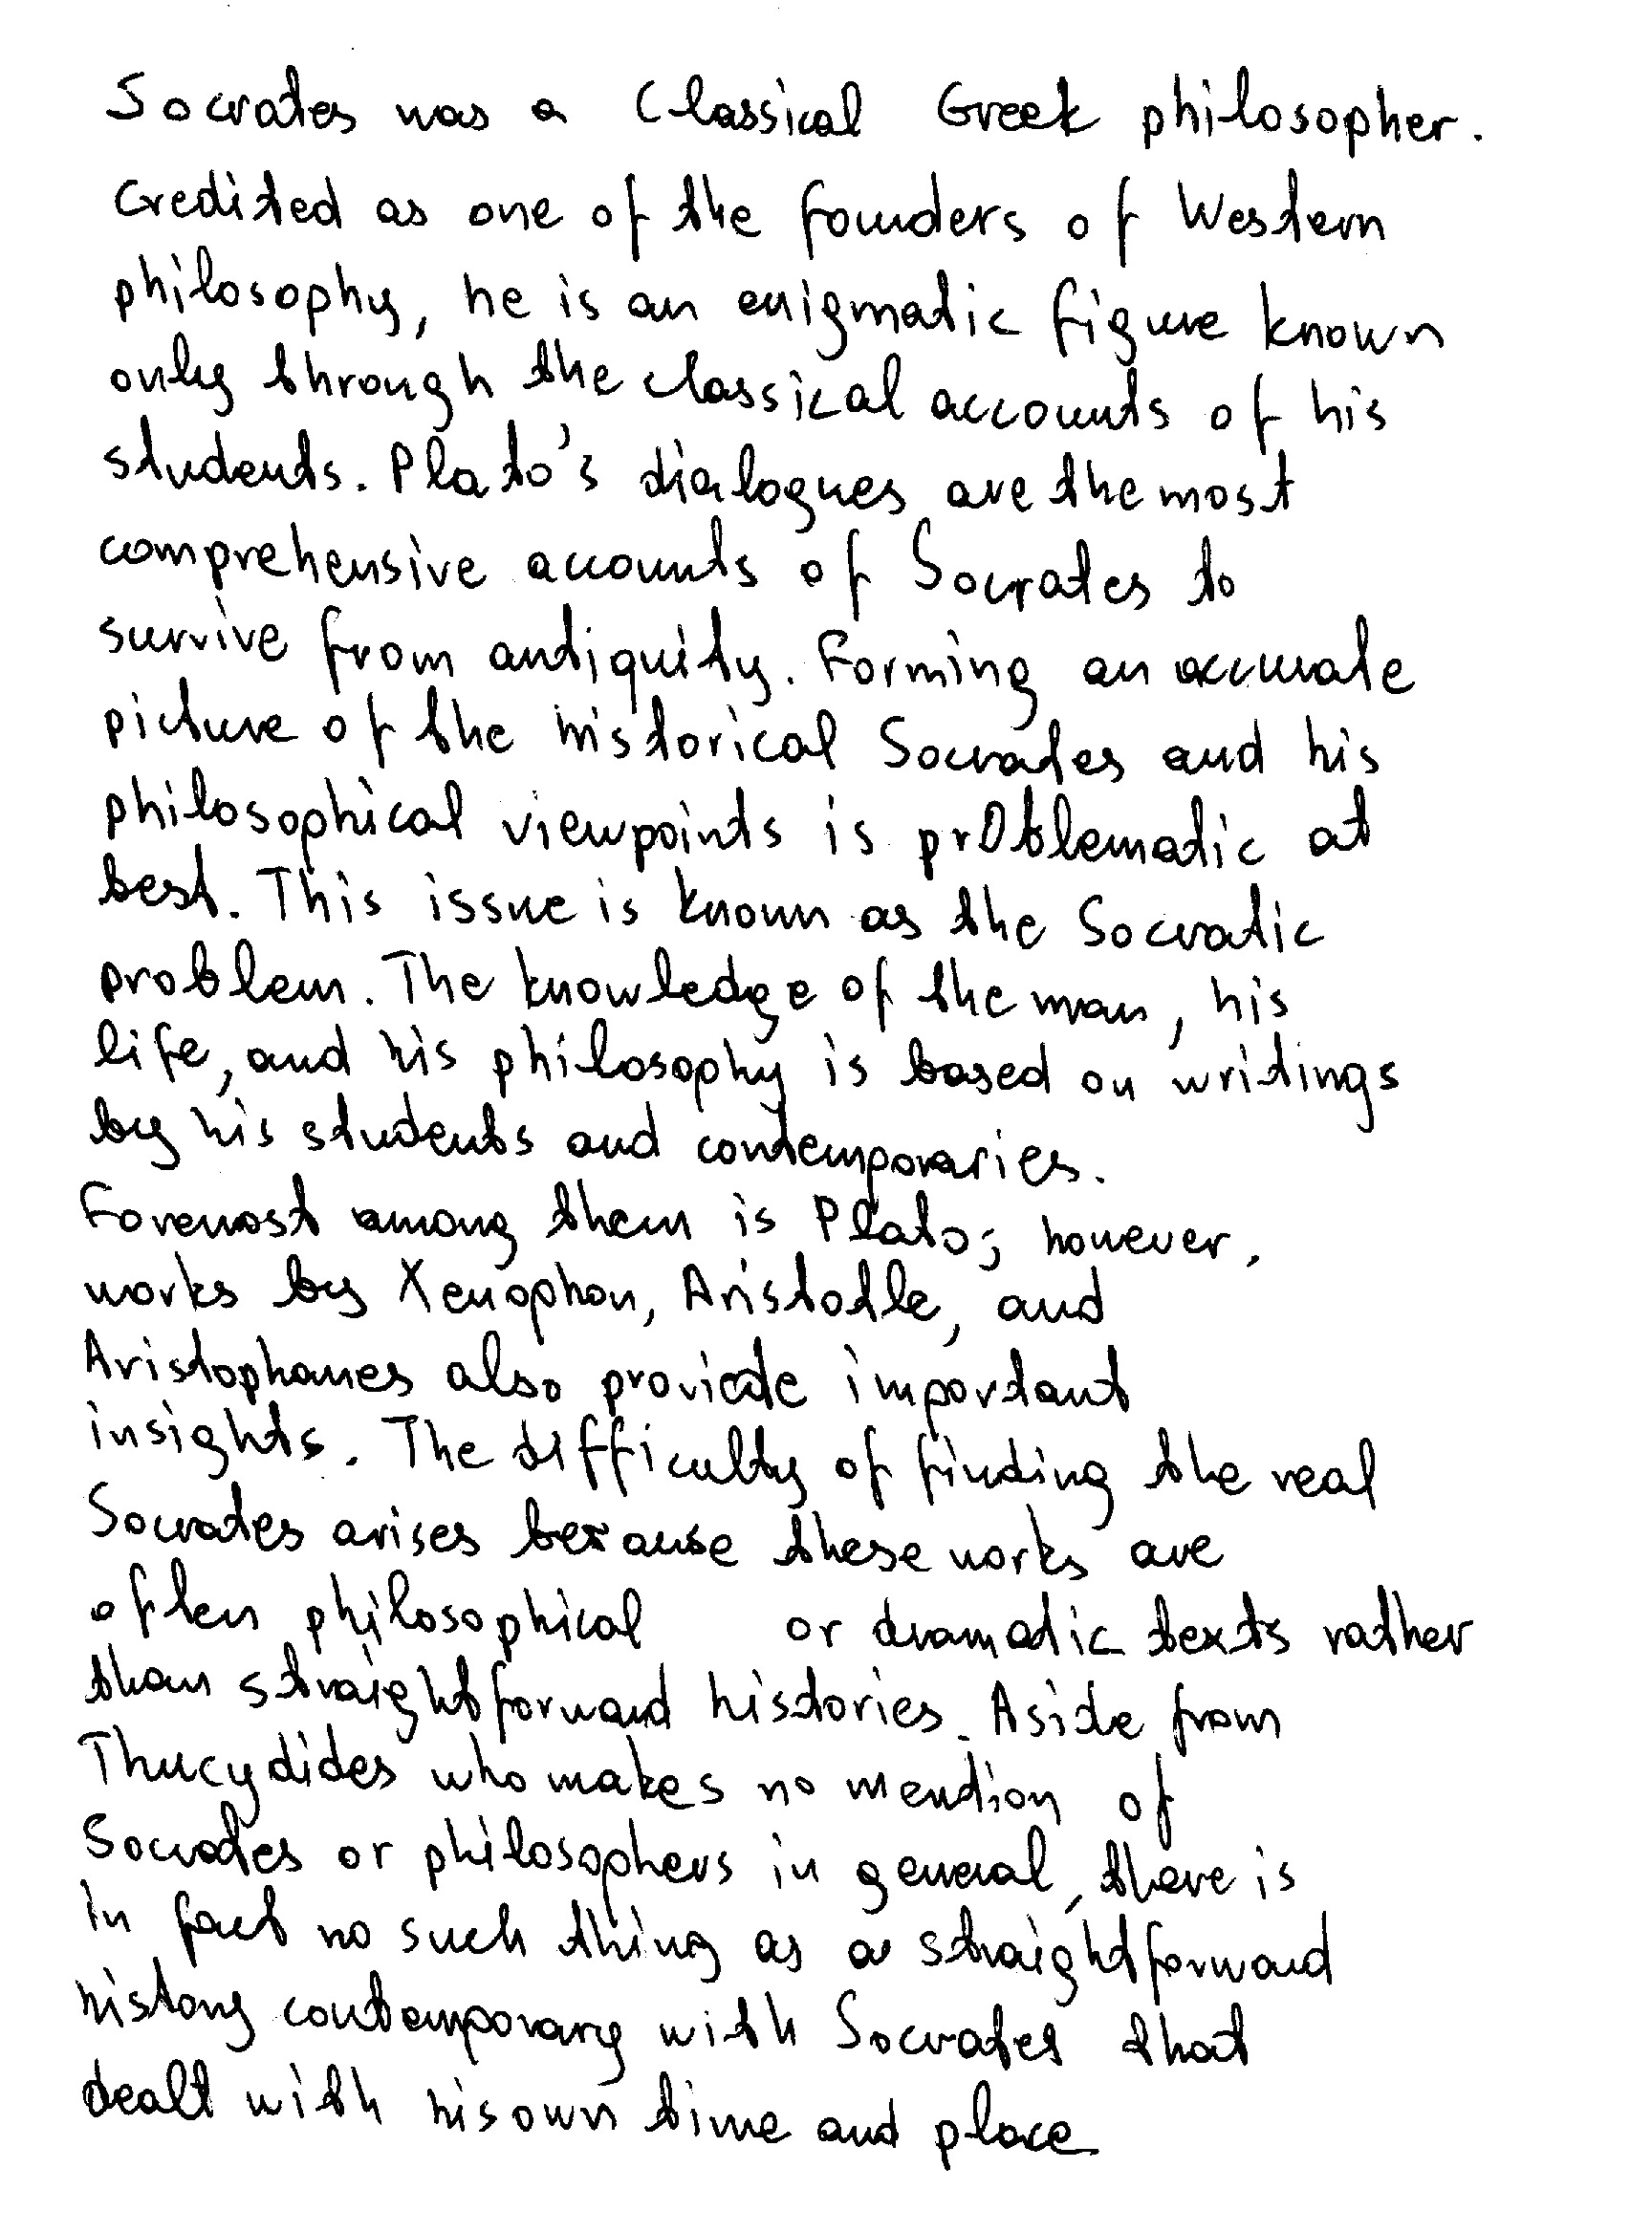 Socrates was a Classical Greek philosopher.
Credited as one of the founders of Western
philosophy, he is an enigmatic figure known
only through the classical accounts of his
students. Plato's dialogues are the most
comprehensive accounts of Socrates to
survive from antiquity. Forming an accurate
picture of the historical Socrates and his
philosophical viewpoints is problematic at
best. This issue is known as the Socratic
problem. The knowledge of the man, his
life, and his philosophy is based on writings
by his students and contemporaries.
Foremost among them is Plato; however,
works by Xenophon, Aristotle, and
Aristophanes also provide important
insights. The difficulty of finding the real
Socrates arises because these works are
often philosophical or dramatic texts rather
than straightforward histories. Aside from
Thucydides who makes no mention of
Socrates or philosophers in general, there is
in fact no such thing as a straightforward
history contemporary with Socrates that
dealt with his own time and place